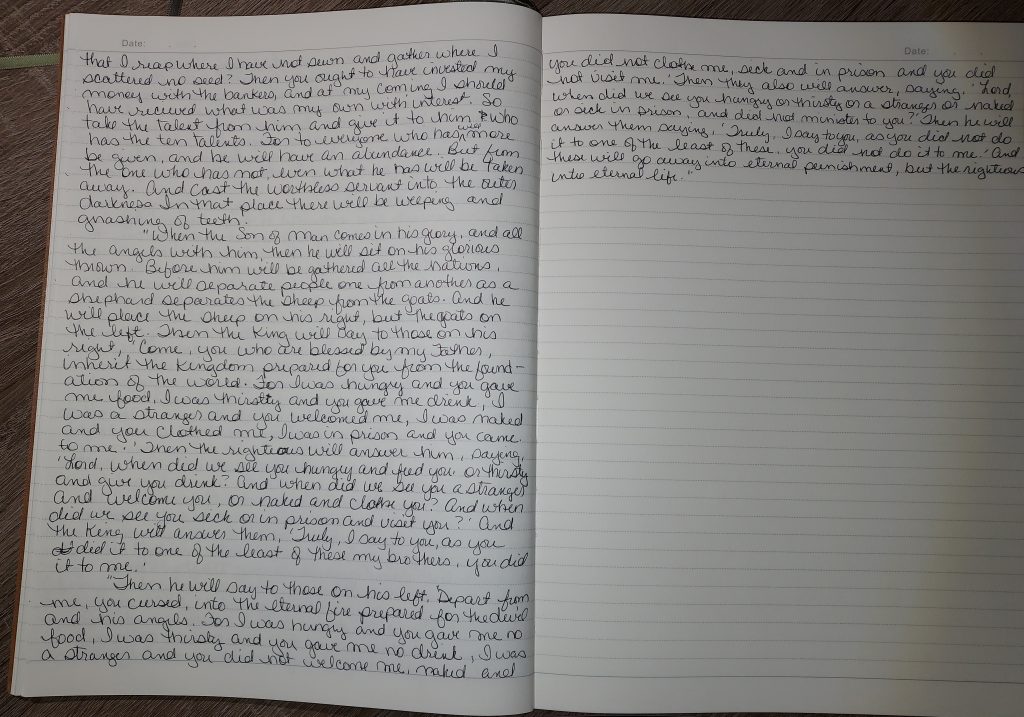 Date:
that I reap where I have not sewn and gather where I
scattered no seed? Then you ought to have invested my
money with the bankers, and at my coming I should
have recived what was my own with interest. So
take the talent from him and give it to him who
has the ten talents. For to everyone who has, will more
be given, and be will have an abundance. But from
the one who has not, even what he has will be taken
away. And cast the worthless servant into the outer
darkness In that place there will be weeping and
gnashing of teeth.'
"When the Son of Man comes in his glory, and all
the angels with him, then he will sit on his glorious
thrown. Before him will be gathered all the nations,
and he will separate people one from another as a
shephard separates the sheep from the goats. And he
will place the sheep on his right, but the goats on
the left. Then the King will say to those on his
right, 'Come, you who are blessed by my Father,
inherit the kingdom prepared for you from the found-
ation of the world. For I was hungry and you gave
me food, I was thirstty and you gave me drink, I
was a stranger and you welcomed me, I was naked
and you clothed me, I was in prison and you came
to me.' Then the righteous will answer him, saying,
'Lord, when did we see you hungry and feed you or thirsty
and give you drink? And when did we see you a stranger
and welcome you, or naked and clothe you? And when
did we see you sick or in prison and visit you?' And
the King will answer them, 'Truly, I say to you, as you
did it to one of the least of these my brothers, you did
it to me.'
"Then he will say to those on his left, 'Depart from
me, you cursed, into the eternal fire prepared for the devil
and his angels. For I was hungry and you gave me no
food, I was thirsty and you gave me no drink, I was
a stranger and you did not welcome me, naked and
Date:
you did not clothe me, sick and in prison and you did
not visit me.' Then they also will answer, saying, 'Lord,
when did we see you hungry or thirsty or a stranger or naked
or sick in prison, and did not minister to you?' Then he will
answer them saying, 'Truly, I say to you, as you did not do
it to one of the least of these, you did not do it to me.' And
these will go away into eternal punishment, but the righteous
into eternal life."